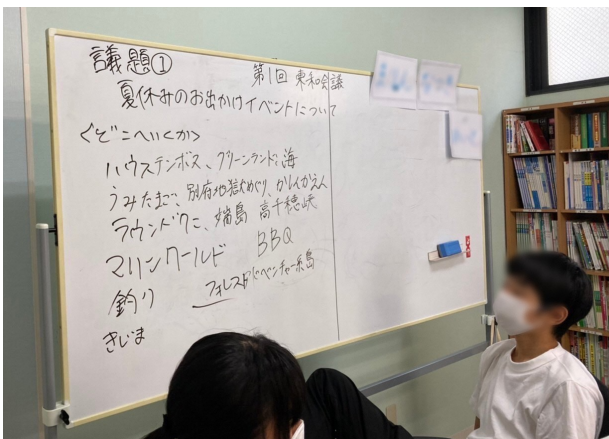 議題①
第1回 東和会議
夏休みのお出かけイベントについて
<どこへいくか>
ハウステンボス、グリーンランド、海
うみたまご、別府地獄めぐり、かしいかえん
ラウンドワン、端島 高千穂峡
マリンワールド BBQ
釣り フォレストアドベンチャー糸島
きじま